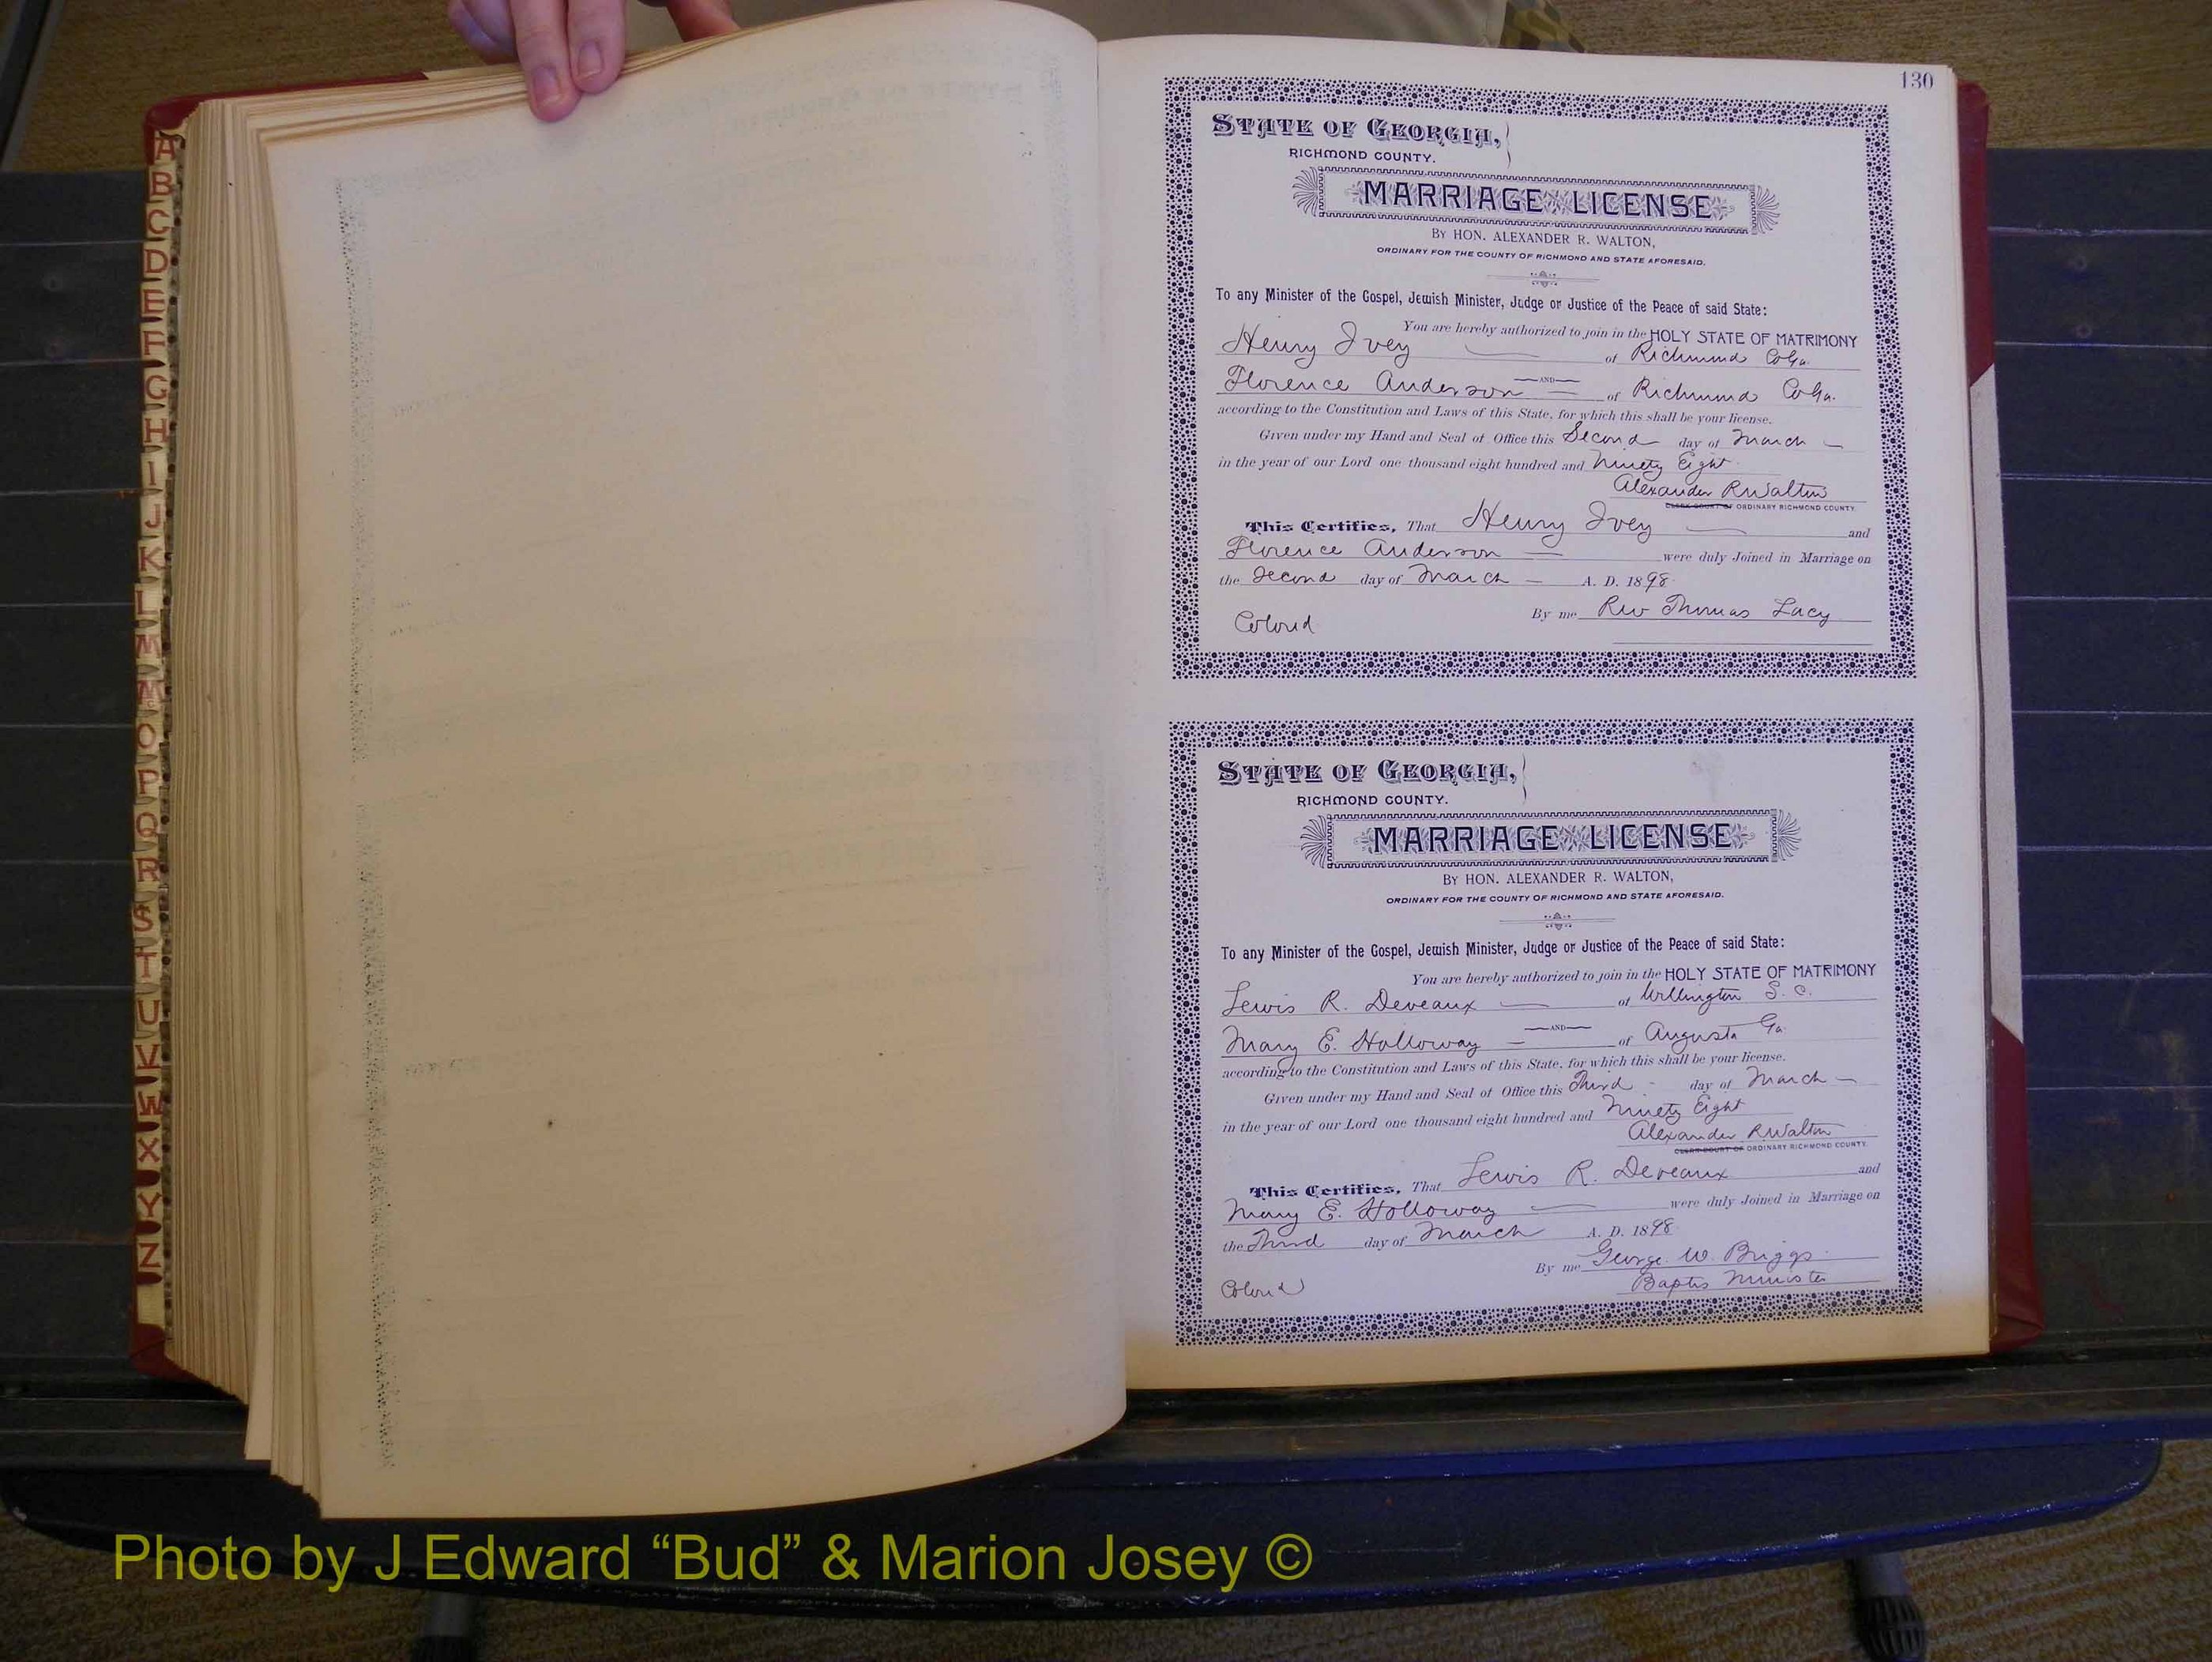 130
STATE OF GEORGIA,
RICHMOND COUNTY.
MARRIAGE LICENSE
BY HON. ALEXANDER R. WALTON,
ORDINARY FOR THE COUNTY OF RICHMOND AND STATE AFORESAID.
To any Minister of the Gospel, Jewish Minister, Judge or Justice of the Peace of said State:
You are hereby authorized to join in the HOLY STATE OF MATRIMONY
Henry Ivey of Richmond Co Ga.
AND
Florence Anderson of Richmond Co Ga.
according to the Constitution and Laws of this State, for which this shall be your license.
Given under my Hand and Seal of Office this Second day of March
in the year of our Lord one thousand eight hundred and Ninety Eight
Alexander R Walton
CLERK COURT OF ORDINARY RICHMOND COUNTY.
This Certifies, That Henry Ivey and
Florence Anderson were duly Joined in Marriage on
the Second day of March A. D. 1898
By me Rev Thomas Lacy
Colord
STATE OF GEORGIA,
RICHMOND COUNTY.
MARRIAGE LICENSE
BY HON. ALEXANDER R. WALTON,
ORDINARY FOR THE COUNTY OF RICHMOND AND STATE AFORESAID.
To any Minister of the Gospel, Jewish Minister, Judge or Justice of the Peace of said State:
You are hereby authorized to join in the HOLY STATE OF MATRIMONY
Lewis R. Deveaux of Willington S. C.
AND
Mary E. Holloway of Augusta Ga.
according to the Constitution and Laws of this State, for which this shall be your license.
Given under my Hand and Seal of Office this Third day of March
in the year of our Lord one thousand eight hundred and Ninety Eight
Alexander R Walton
CLERK COURT OF ORDINARY RICHMOND COUNTY.
This Certifies, That Lewis R. Deveaux and
Mary E. Holloway were duly Joined in Marriage on
the Third day of March A. D. 1898
By me George. W. Briggs
Baptis Minister
Colord
A
B
C
D
E
F
G
H
I
J
K
L
M
Mc
O
P
Q
R
S
T
U
V
W
X
Y
Z
Photo by J Edward “Bud” & Marion Josey ©